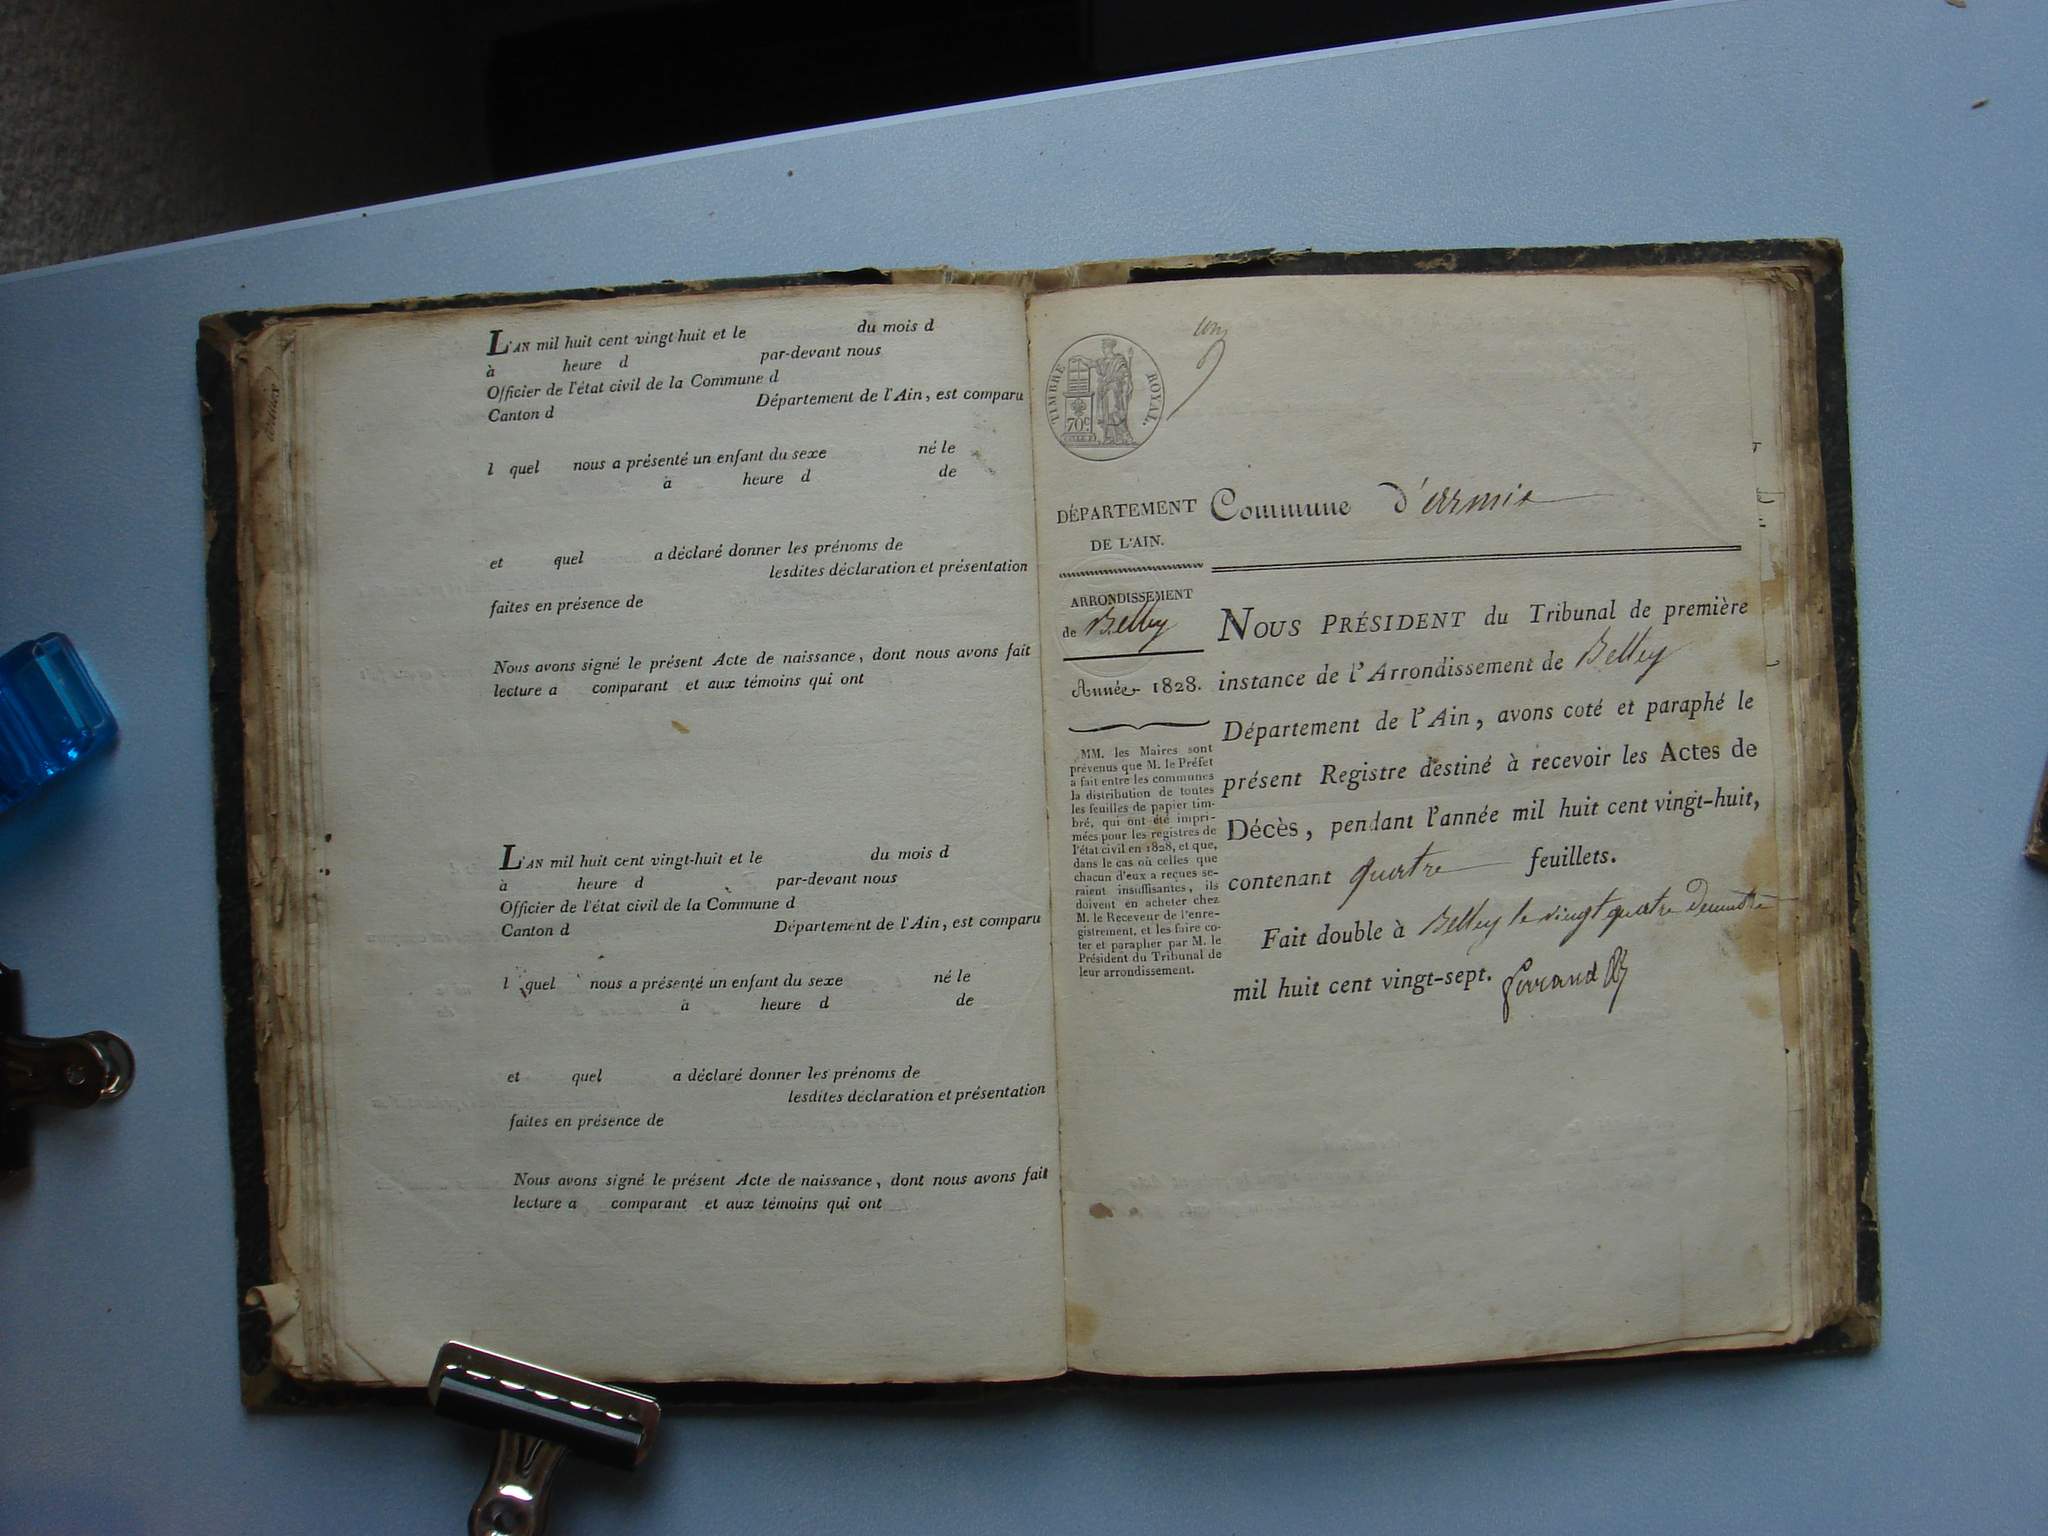 L'AN mil huit cent vingt-huit et le du mois d
à heure d par-devant nous
Officier de l'état civil de la Commune d
Canton d Département de l'Ain, est comparu
l quel nous a présenté un enfant du sexe né le
à heure d de
et quel a déclaré donner les prénoms de
lesdites déclaration et présentation
faites en présence de
Nous avons signé le présent Acte de naissance, dont nous avons fait
lecture a comparant et aux témoins qui ont
L'AN mil huit cent vingt-huit et le du mois d
à heure d par-devant nous
Officier de l'état civil de la Commune d
Canton d Département de l'Ain, est comparu
l quel nous a présenté un enfant du sexe né le
à heure d de
et quel a déclaré donner les prénoms de
lesdites déclaration et présentation
faites en présence de
Nous avons signé le présent Acte de naissance, dont nous avons fait
lecture a comparant et aux témoins qui ont
TIMBRE ROYAL.
70c
DÉPARTEMENT
DE L'AIN.
ARRONDISSEMENT
de Belley
Année 1828.
MM. les Maires sont
prévenus que M. le Préfet
a fait entre les communes
la distribution de toutes
les feuilles de papier tim-
bré, qui ont été impri-
mées pour les registres de
l'état civil en 1828, et que,
dans le cas où celles que
chacun d'eux a reçues se-
raient insuffisantes, ils
doivent en acheter chez
M. le Receveur de l'enre-
gistrement, et les faire co-
ter et parapher par M. le
Président du Tribunal de
leur arrondissement.
Commune d'armix
NOUS PRÉSIDENT du Tribunal de première
instance de l'Arrondissement de Belley
Département de l'Ain, avons coté et paraphé le
présent Registre destiné à recevoir les Actes de
Décès, pendant l'année mil huit cent vingt-huit,
contenant quatre feuillets.
Fait double à Belley le vingt quatre Decembre
mil huit cent vingt-sept.